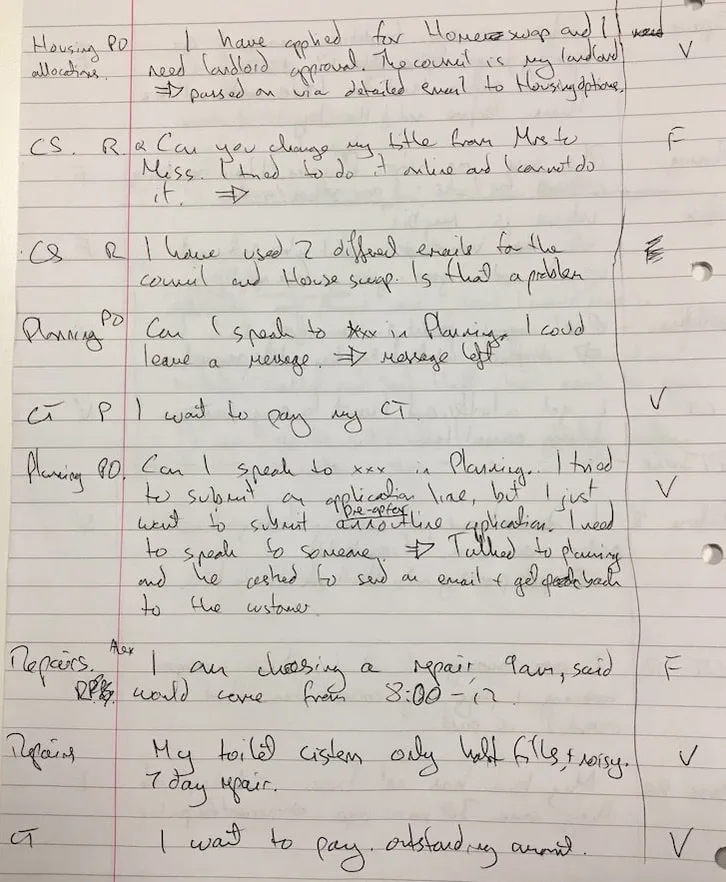 Housing PO I have applied for Homeswap and I
allocations. need landlord approval. The council is my landlord V
⇒ passed on via detailed email to Housing options.
CS. R Can you change my title from Mrs to F
Miss. I tried to do it online and I cannot do
it. ⇒
CS R I have used 2 differed emails for the
council and House swap. Is that a problem
Planning PO Can I speak to xxx in Planning. I could
leave a message. ⇒ message left
CT P I want to pay my CT. V
Planning PO. Can I speak to xxx in Planning. I tried
to submit an application line, but I just V
want to submit outline application. I need
to speak to someone. ⇒ Talked to planning
and he asked to send an email + get back
to the customer
Repairs. Alex I am chasing a repair, 9am, said F
would come from 8:00 – 12
Repairs My toilet cistern only half fills, + noisy. V
7 day repair.
CT I want to pay outstanding amount. V